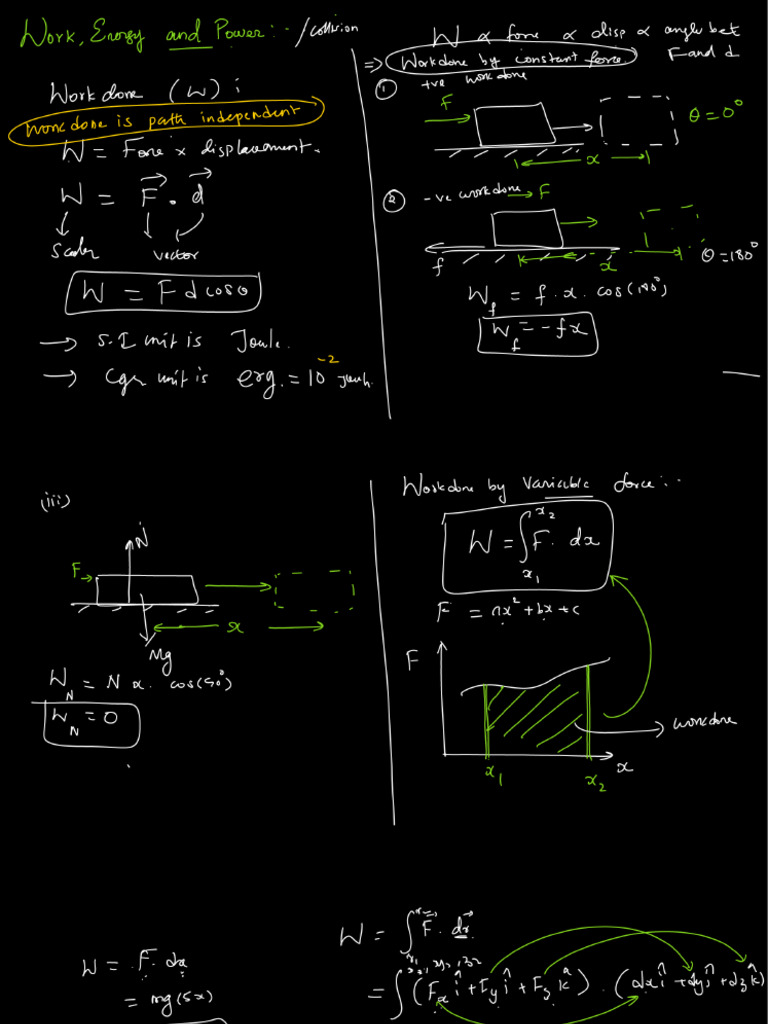 Work, Energy and Power :- /collision
Workdone (W) :
Workdone is path independent
W = Force × displacement.
W = F⃗ . d⃗
Scalar vector
W = F d cosθ
→ S.I unit is Joule.
→ Cgs unit is erg. = 10⁻² Joule.
W ∝ force ∝ disp ∝ angle bet F and d
⇒ Workdone by constant force
① +ve workdone
F
θ = 0°
x
② -ve workdone → F
f
x
θ = 180°
W_f = f . x . cos(180°)
W_f = - fx
(iii)
N
F
x
Mg
W_N = N x . cos(90°)
W_N = 0
Workdone by Variable force :-
W = ∫_{x₁}^{x₂} F . dx
F = ax² + bx + c
F
workdone
x₁ x₂ x
W = F . dx
= mg(5x)
W = ∫ F⃗ . dr⃗
= ∫ (F_x î + F_y ĵ + F_z k̂) . (dx î + dy ĵ + dz k̂)